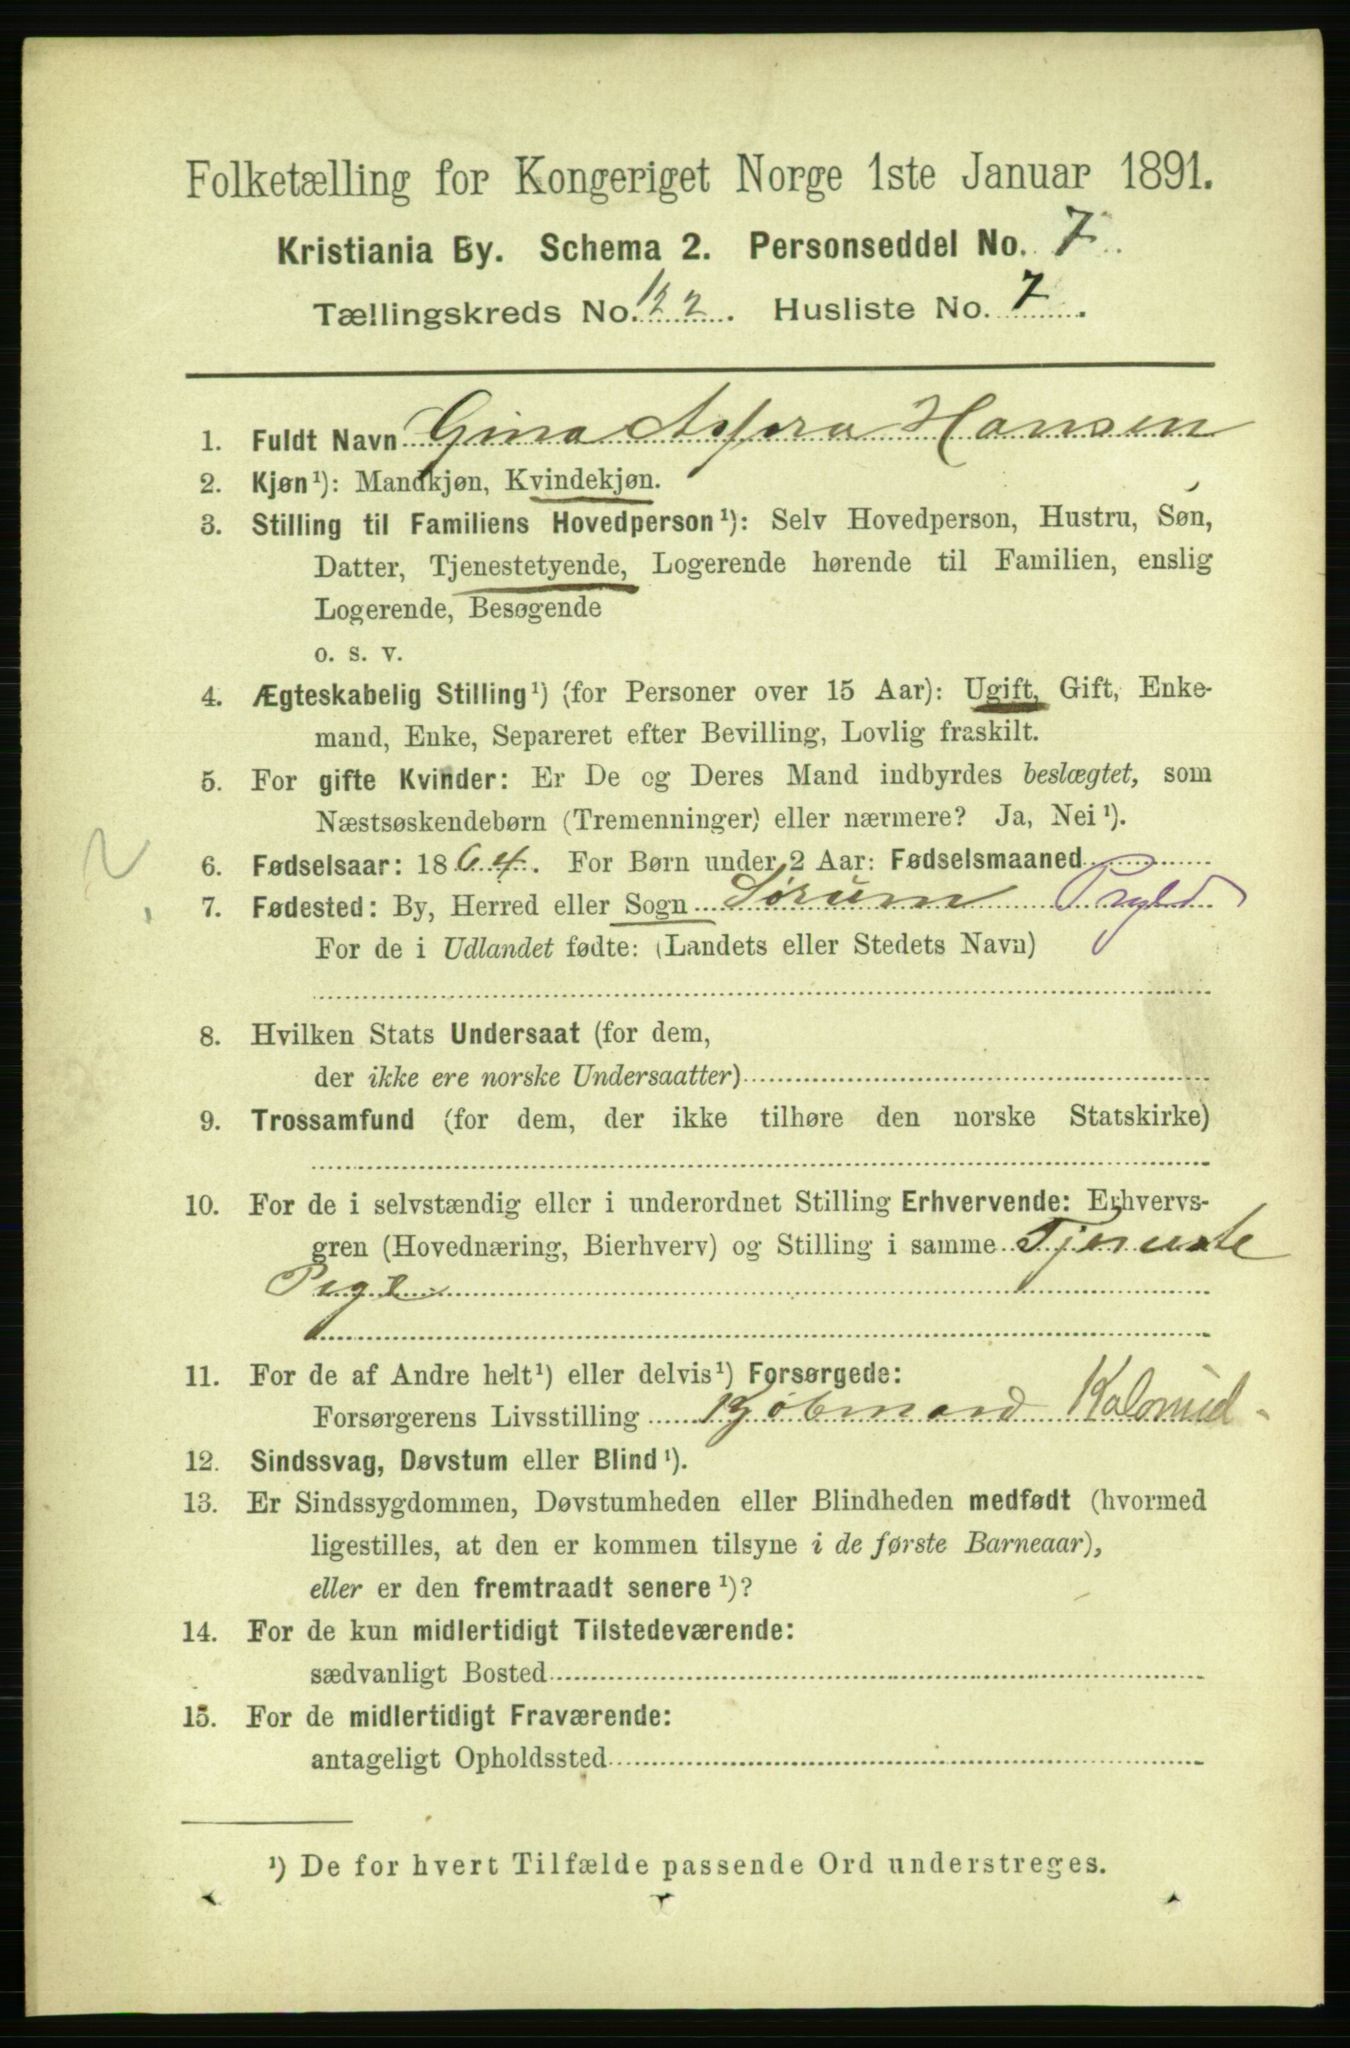 Folketælling for Kongeriget Norge 1ste Januar 1891.
Kristiania By. Schema 2. Personseddel No. 7.
Tællingskreds No. 122. Husliste No. 7.
1. Fuldt Navn Gina Hansen
2. Kjøn¹): Mandkjøn, Kvindekjøn.
3. Stilling til Familiens Hovedperson¹): Selv Hovedperson, Hustru, Søn,
Datter, Tjenestetyende, Logerende hørende til Familien, enslig
Logerende, Besøgende
o. s. v.
4. Ægteskabelig Stilling¹) (for Personer over 15 Aar): Ugift, Gift, Enke-
mand, Enke, Separeret efter Bevilling, Lovlig fraskilt.
5. For gifte Kvinder: Er De og Deres Mand indbyrdes beslægtet, som
Næstsøskendebørn (Tremenninger) eller nærmere? Ja, Nei¹).
6. Fødselsaar: 1864. For Børn under 2 Aar: Fødselsmaaned
7. Fødested: By, Herred eller Sogn Sørum
For de i Udlandet fødte: (Landets eller Stedets Navn)
8. Hvilken Stats Undersaat (for dem,
der ikke ere norske Undersaatter)
9. Trossamfund (for dem, der ikke tilhøre den norske Statskirke)
10. For de i selvstændig eller i underordnet Stilling Erhvervende: Erhvervs-
gren (Hovednæring, Bierhverv) og Stilling i samme Tjeneste
Pige
11. For de af Andre helt¹) eller delvis¹) Forsørgede:
Forsørgerens Livsstilling Kjøbmand
12. Sindssvag, Døvstum eller Blind¹).
13. Er Sindssygdommen, Døvstumheden eller Blindheden medfødt (hvormed
ligestilles, at den er kommen tilsyne i de første Barneaar),
eller er den fremtraadt senere¹)?
14. For de kun midlertidigt Tilstedeværende:
sædvanligt Bosted
15. For de midlertidigt Fraværende:
antageligt Opholdssted
¹) De for hvert Tilfælde passende Ord understreges.